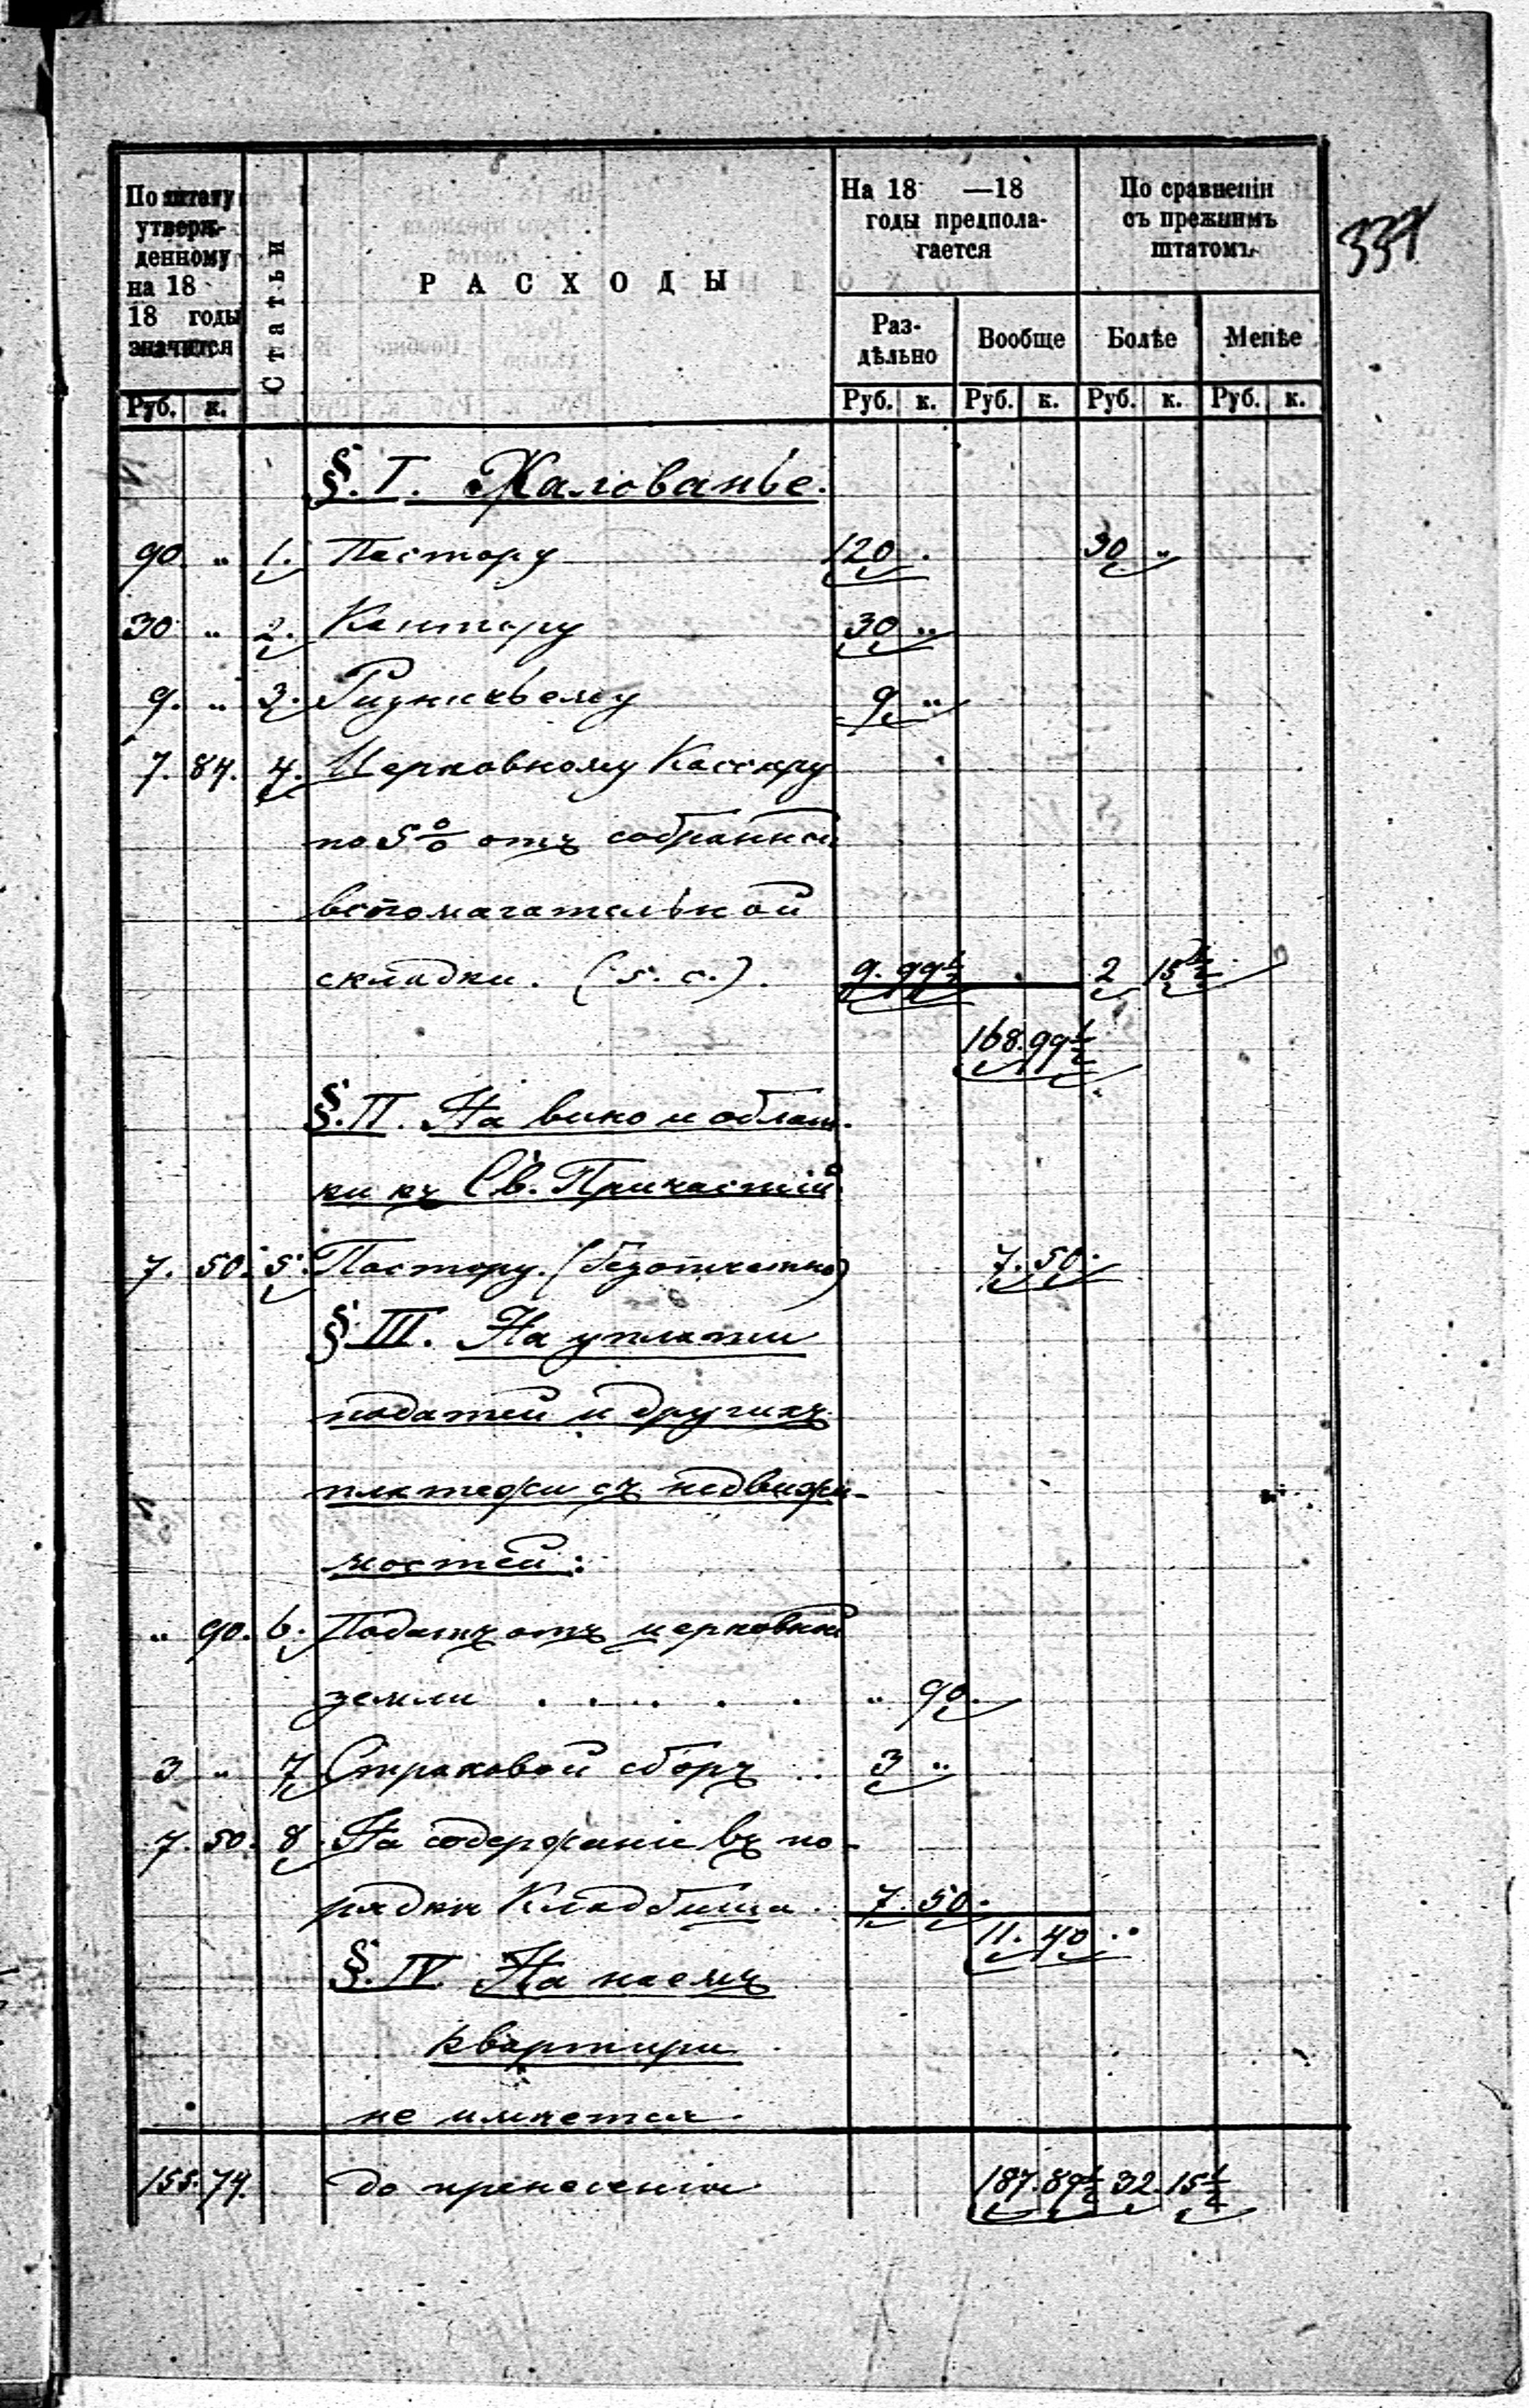 По штату утвержденному на 18 18 годы значится
Статьи
РАСХОДЫ
На 18 —18 годы предполагается
По сравненiи съ прежнимъ штатомъ.
337
Раздѣльно Вообще Болѣе Менѣе
Руб. к. Руб. к. Руб. к. Руб. к. Руб. к.
§. I. Жалованье.
90 " 1. Пастору 120 . 30 "
30 " 2. Кантору 30 "
9. " 3. Ризничьему 9 "
7. 84. 4. Церковному Кассиру
по 5% отъ собранной
вспомагательной
складки. (5. с.). 9. 99½ 2 15½
168. 99½
§. II. На вино и облат-
ки къ Св. Причастiй
7. 50. 5. Пастору. (безотчетно) 7. 50.
§ III. На уплати
податей и другихъ
платежи съ недвижи-
мостей:
" 90. 6. Подать отъ церковной
земли . . . . . . " 90.
3 " 7 Страховой сборъ .. 3 "
7. 50. 8. На содержанiе въ по-
рядки Кладбища. 7. 50.
11. 40.
§. IV. На наемъ
квартири
не имѣется.
155. 74. до пренесенiя 187. 89½ 32. 15½